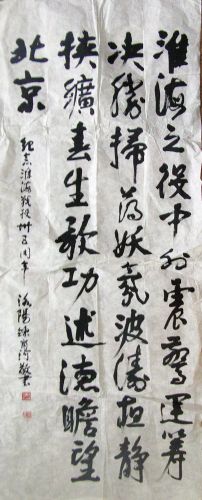 淮海之役中外震驚運籌
决勝掃蕩妖氛波濤恬静
挟纊春生歌功述德瞻望
北京
紀念淮海戰役卅五周年 洛陽 敬書